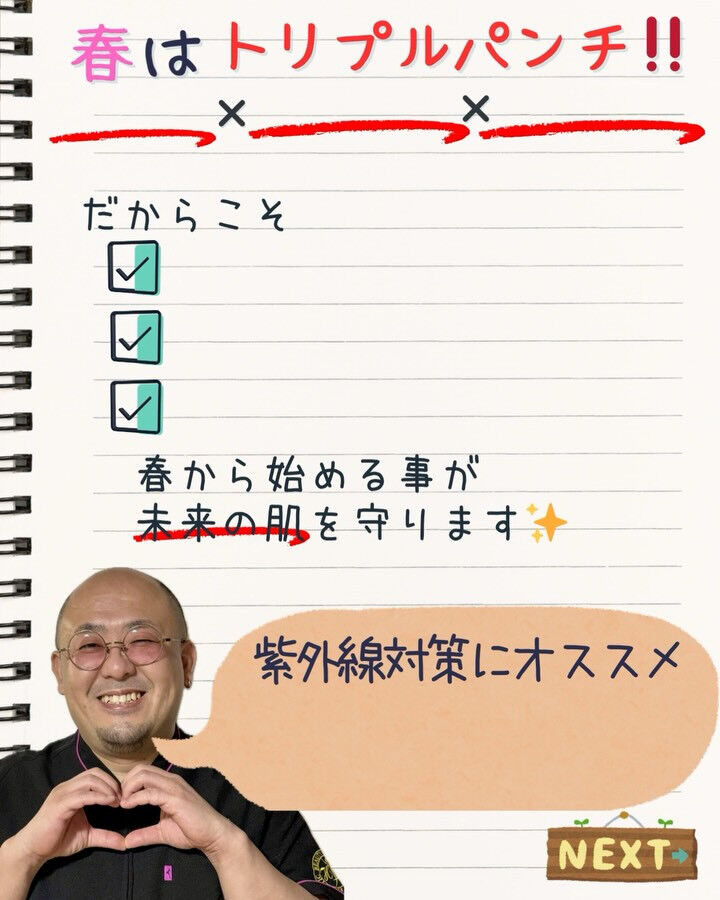 春はトリプルパンチ‼
× ×
だからこそ
春から始める事が
未来の肌を守ります✨
紫外線対策にオススメ
NEXT→